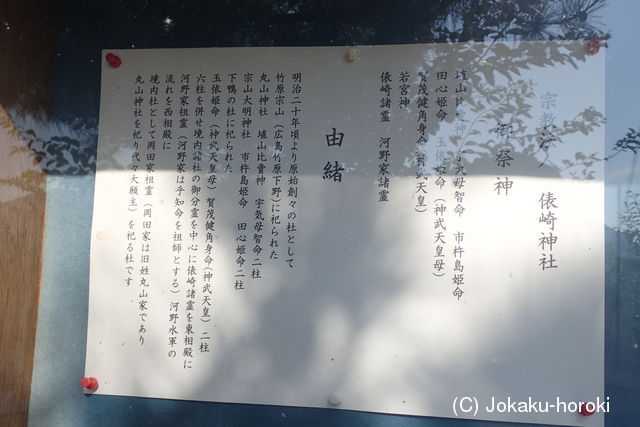 宗教法人 俵崎神社
御祭神
埴山比賣神 宇気母智命 市杵島姫命
田心姫命 玉依姫命(神武天皇母)
賀茂健角身命(神武天皇)
若宮神
俵崎諸霊 河野家諸霊
由緒
明治二十年頃より原始創々の社として
竹原宗山(広島竹原下野)に祀られた
丸山神社 埴山比賣神 宇気母智命二柱
宗山大明神社 市杵島姫命 田心姫命二柱
下鴨の社に祀られた
玉依姫命(神武天皇母)賀茂健角身命(神武天皇)二柱
六柱を併せ境内諸社の御分霊を中心に俵崎諸霊を東相殿に
河野家祖霊(河野家は乎知命を祖師とする)河野水軍の
流れを西相殿に
境内社として岡田家祖霊(岡田家は旧姓丸山家であり
丸山神社を祀り代々大願主)を祀る社です
(C) Jokaku-horoki